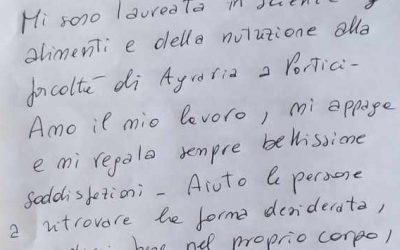 Mi sono laureata in scienze
alimenti e della nutrizione alla
facoltà di Agraria a Portici-
Amo il mio lavoro, mi appaga
e mi regala sempre bellissime
soddisfazioni - Aiuto le persone
a ritrovare la forma desiderata,
bene nel proprio corpo,